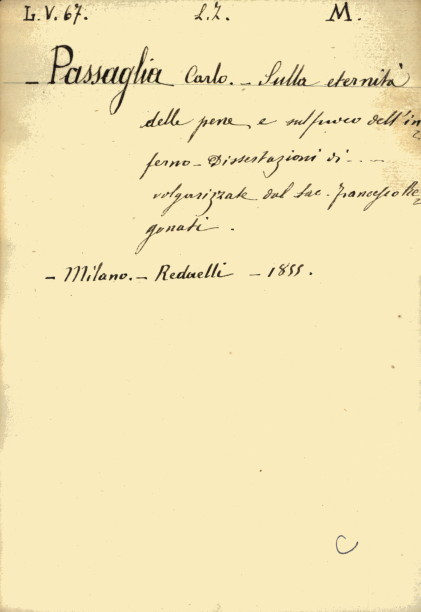 L.V.67. L.Z. M.
– Passaglia Carlo. – Sulla eternità
delle pene e sul fuoco dell'in
ferno – Dissertazioni di - - -
volgarizzate dal Sac. Francesco Re
gonati.
– Milano. – Redaelli – 1855.
C